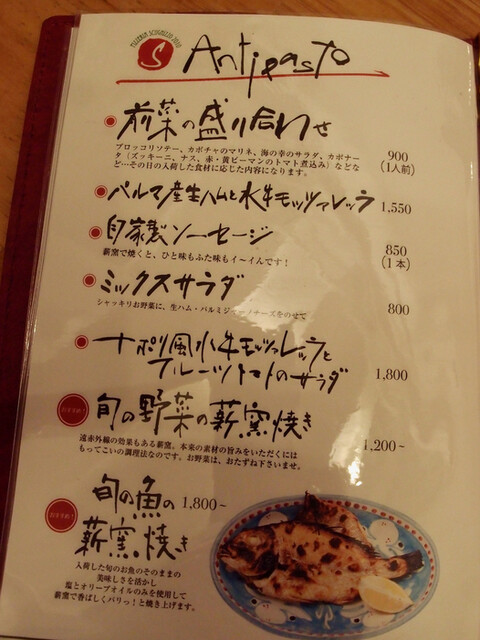 S
Antipasto
前菜の盛り合わせ
ブロッコリソテー、カボチャのマリネ、海の幸のサラダ、カポナー
タ（ズッキーニ、ナス、赤・黄ピーマンのトマト煮込み）などな
ど…その日の入荷した食材に応じた内容になります。
900
(1人前)
パルマ産生ハムと水牛モッツァレッラ 1,550
自家製ソーセージ
薪窯で焼くと、ひと味もふた味もイ～インです！
850
(1本)
ミックスサラダ
シャッキリお野菜に、生ハム・パルミジャーノチーズをのせて
800
ナポリ風水牛モッツァレッラと
フルーツトマトのサラダ 1,800
おすすめ！
旬の野菜の薪窯焼き
遠赤外線の効果もある薪窯。本来の素材の旨みをいただくには
もってこいの調理法なのです。お野菜は、おたずね下さいませ。
1,200～
おすすめ！
旬の魚の 1,800～
薪窯焼き
入荷した旬のお魚のそのままの
美味しさを活かし
塩とオリーブオイルのみを使用して
薪窯で香ばしくパリっ！と焼き上げます。